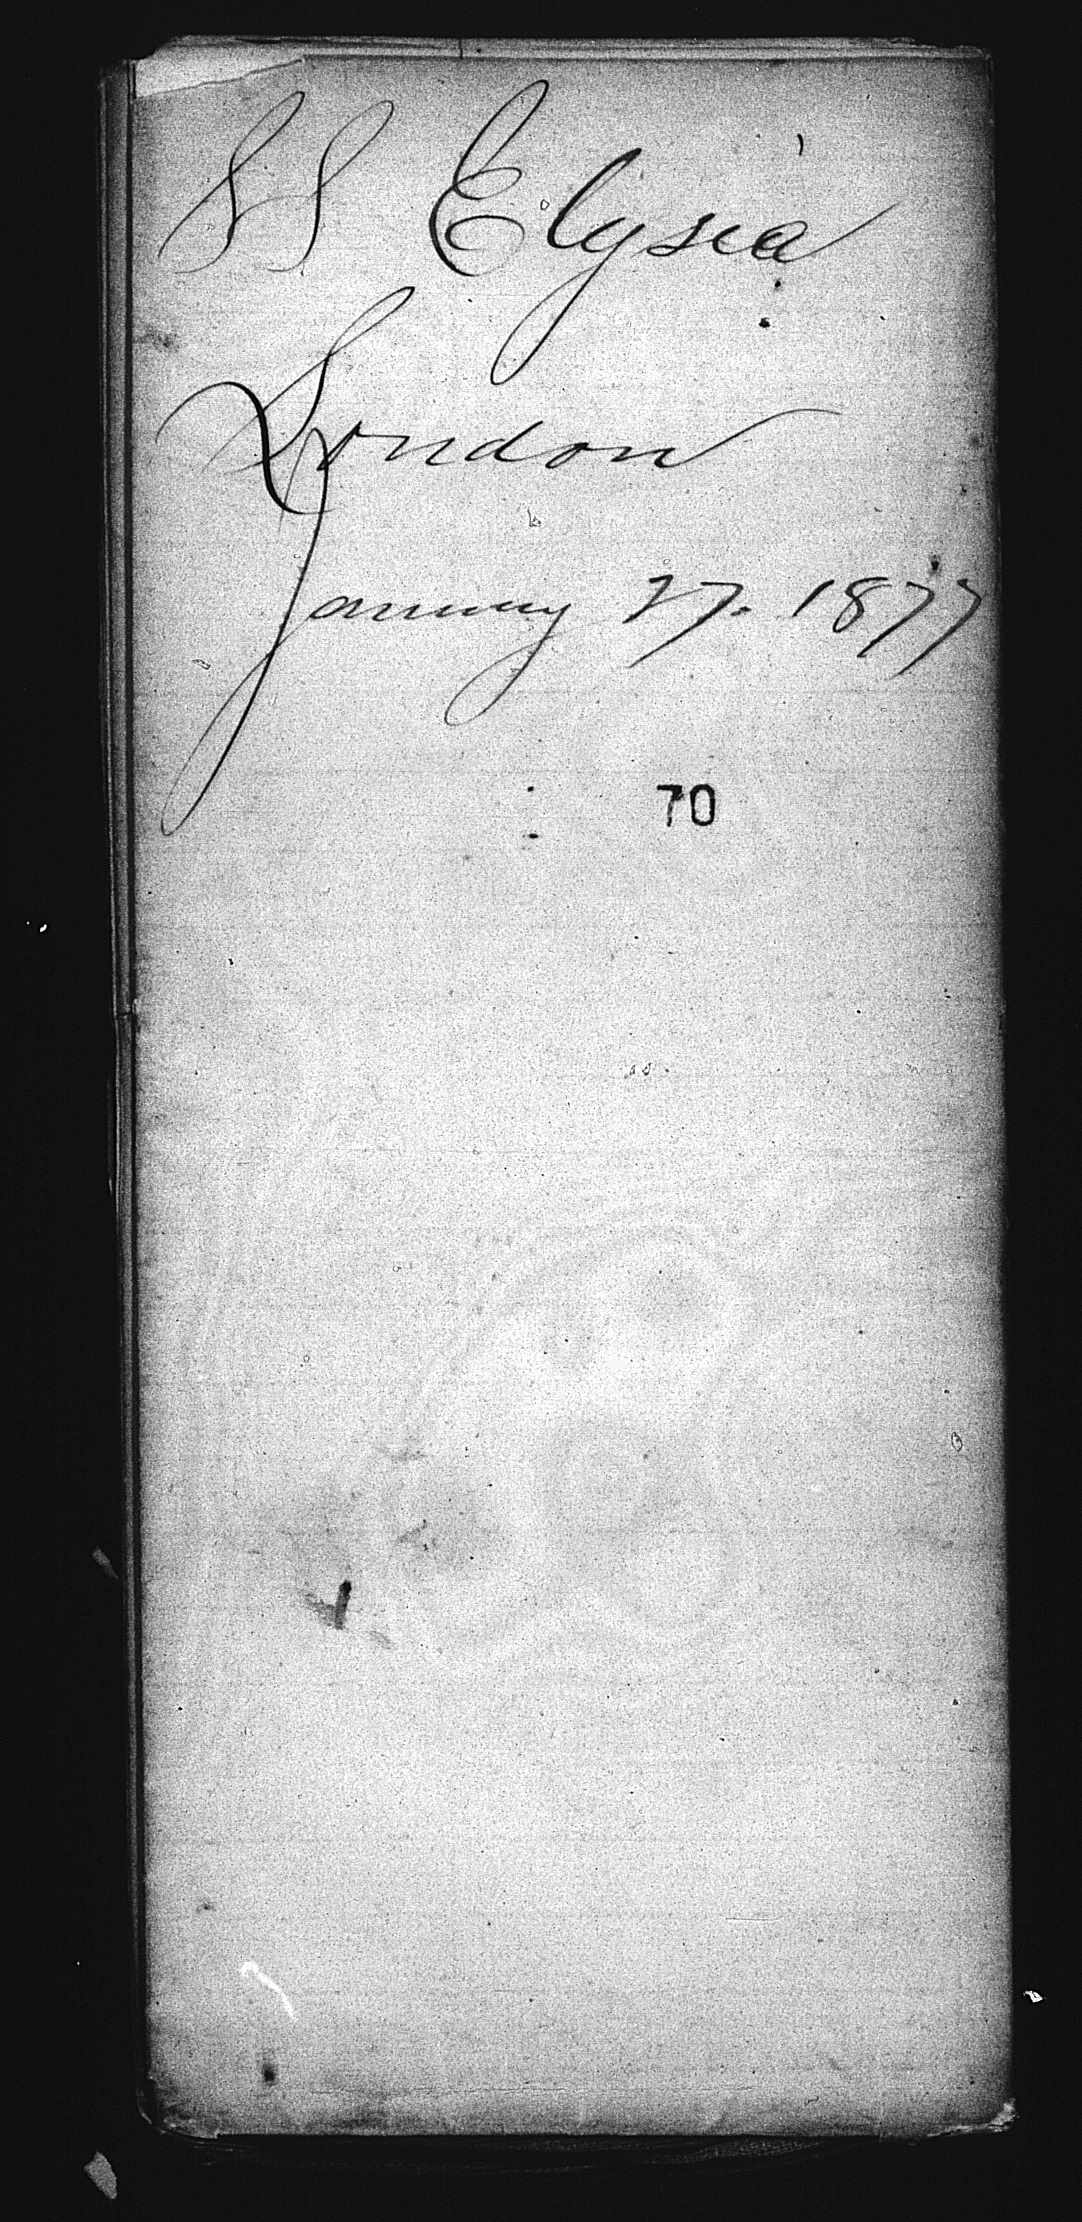 SS Elysia
London
January 27. 1877
70